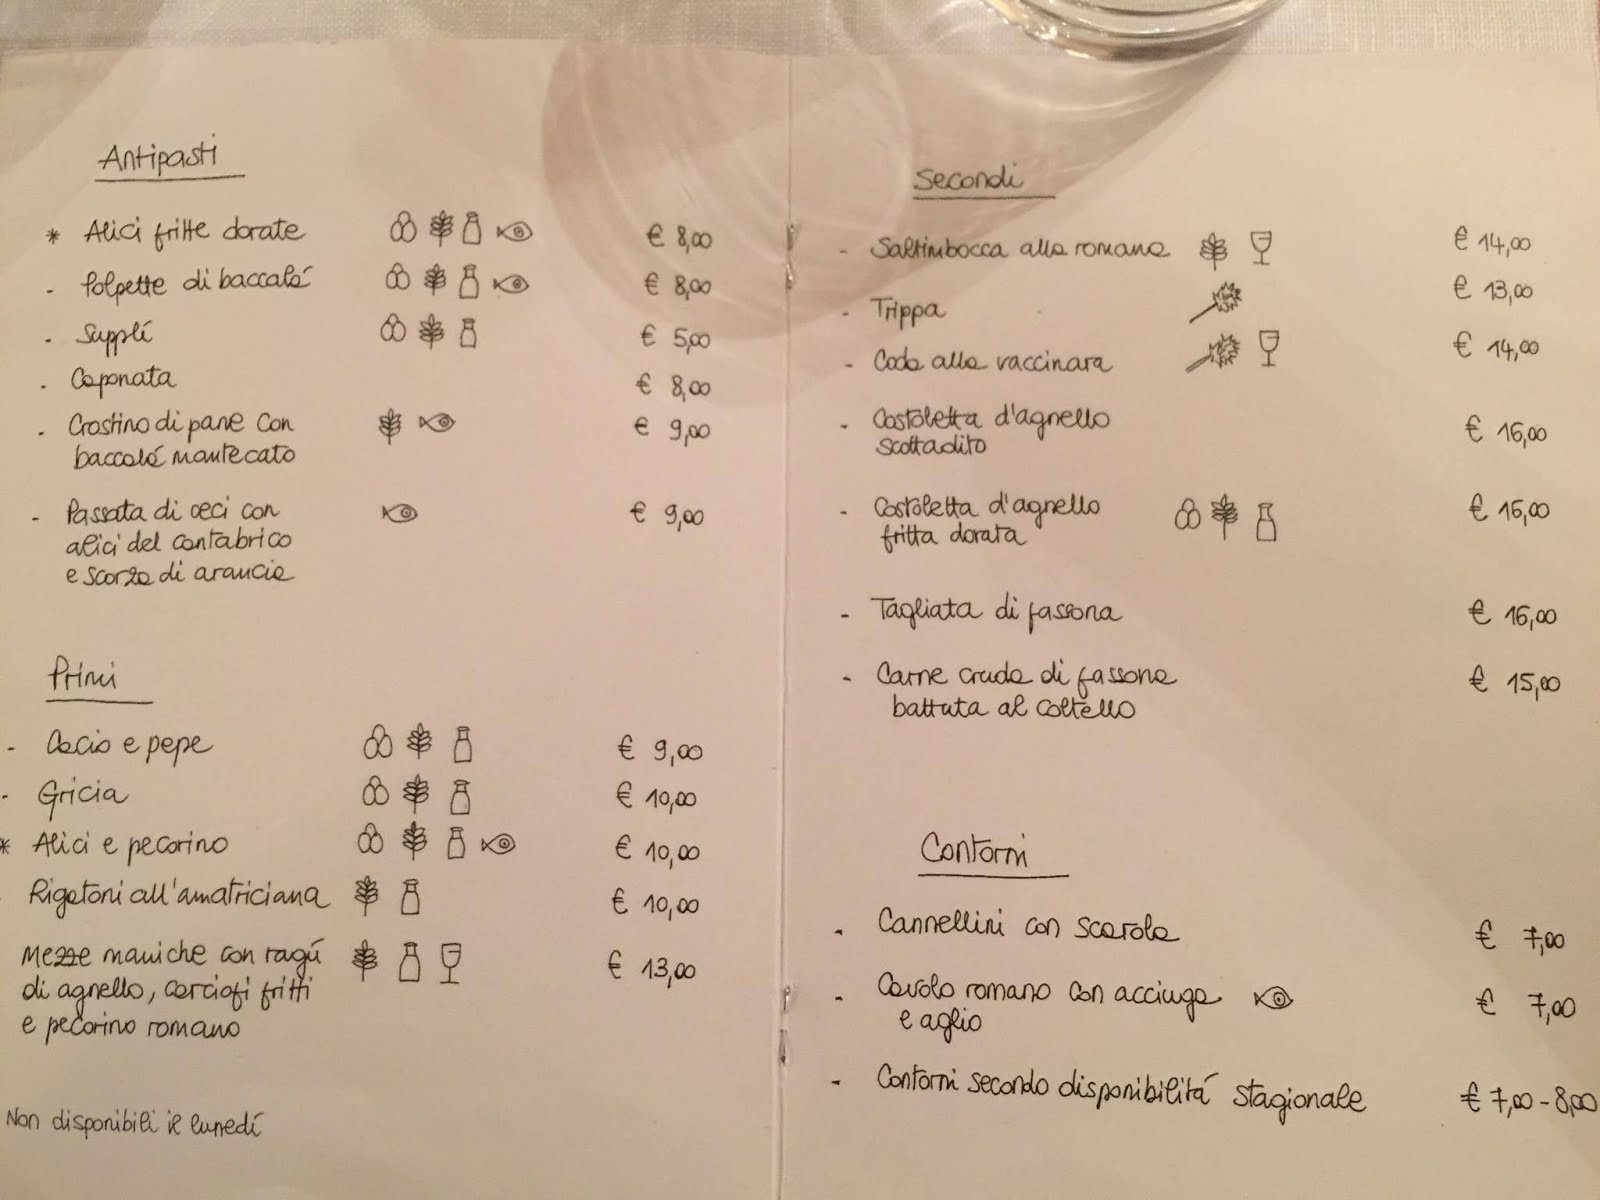 Antipasti
* Alici fritte dorate € 8,00
- Polpette di baccalá € 8,00
- Supplí € 5,00
- Caponata € 8,00
- Crostino di pane con € 9,00
baccalá mantecato
- Passata di ceci con € 9,00
alici del cantabrico
e scorza di arancia
Primi
- Cacio e pepe € 9,00
- Gricia € 10,00
* Alici e pecorino € 10,00
Rigatoni all'amatriciana € 10,00
Mezze maniche con ragú € 13,00
di agnello, carciofi fritti
e pecorino romano
Non disponibili il lunedí
Secondi
- Saltimbocca alla romana € 14,00
- Trippa € 13,00
- Coda alla vaccinara € 14,00
- Costoletta d'agnello € 16,00
scottadito
- Costoletta d'agnello € 16,00
fritta dorata
- Tagliata di fassona € 16,00
- Carne cruda di fassona € 15,00
battuta al coltello
Contorni
- Cannellini con scarola € 7,00
- Cavolo romano con acciuga € 7,00
e aglio
- Contorni secondo disponibilitá stagionale € 7,00 - 8,00